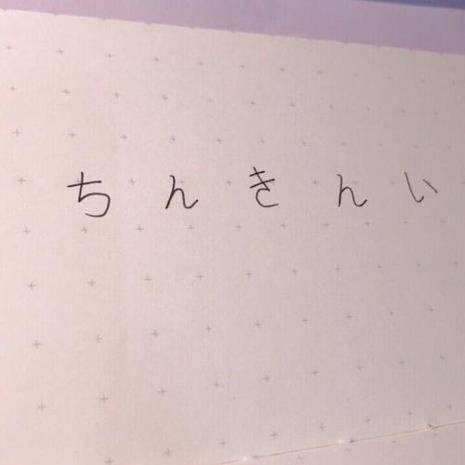 ちんきんい